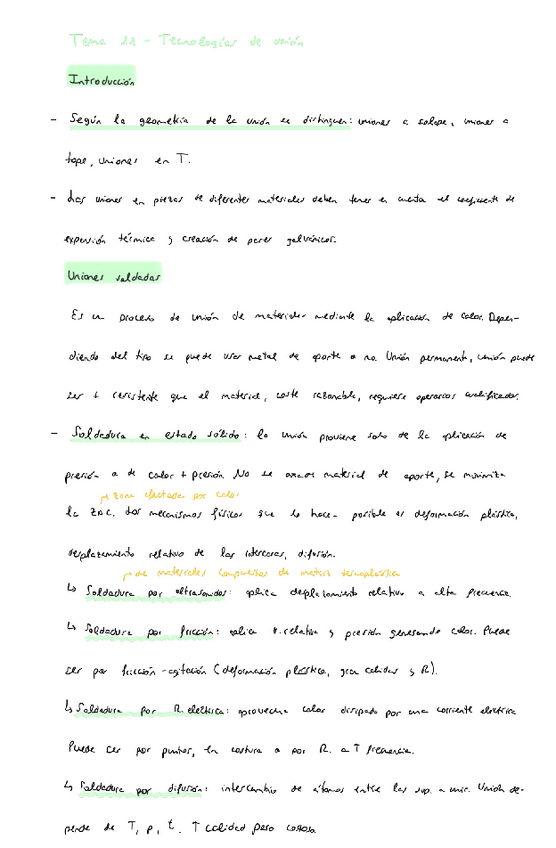 Tema 11 - Tecnologías de unión
Introducción
- Según la geometría de la unión se distinguen: uniones a solape, uniones a
tope, uniones en T.
- Las uniones en piezas de diferentes materiales deben tener en cuenta el coeficiente de
expansión térmica y creación de pares galvánicos.
Uniones soldadas
Es un proceso de unión de materiales mediante la aplicación de calor. Depen-
diendo del tipo se puede usar metal de aporte o no. Unión permanente, unión puede
ser + resistente que el material, coste razonable, requiere operarios cualificados.
- Soldadura en estado sólido: la unión proviene solo de la aplicación de
presión o de calor + presión. No se material de aporte, se minimiza
zona afectada por calor
la ZAC. Los mecanismos físicos que lo hacen posible es deformación plástica,
desplazamiento relativo de las intercaras, difusión.
de materiales compuestos de matriz termoplástica
↳ Soldadura por ultrasonidos: aplica desplazamiento relativo a alta frecuencia.
↳ Soldadura por fricción: aplica relativo y presión generando calor. Puede
ser por fricción-agitación (deformación plástica, gran calidad y R).
↳ Soldadura por R. eléctrica: aprovecha calor disipado por una corriente eléctrica
Puede ser por puntos, en costura o por R. a ↑ frecuencia.
↳ Soldadura por difusión: intercambio de átomos entre las sup. a unir. Unión de-
pende de T, p, t. ↑ calidad pero costosa.